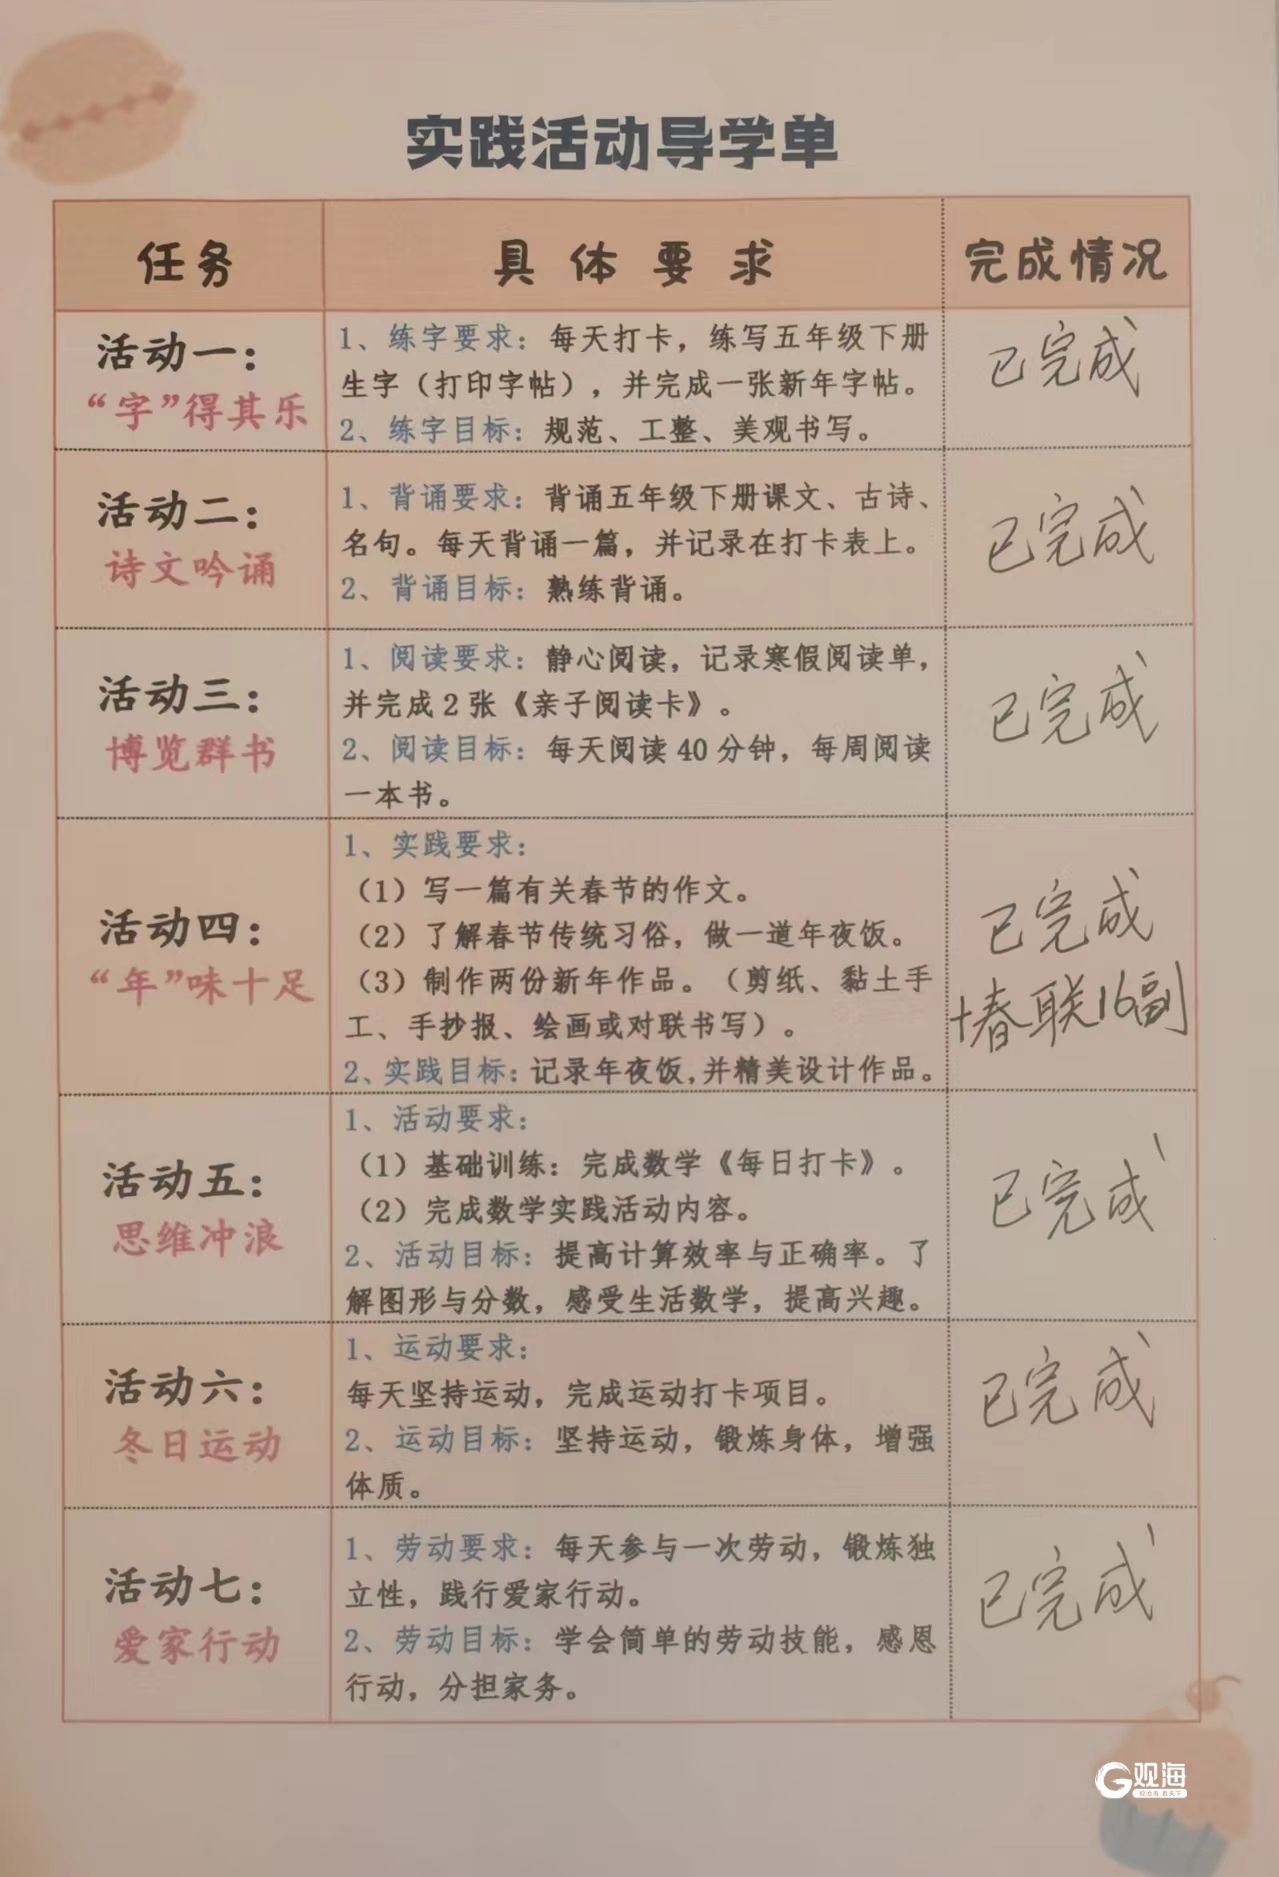 实践活动导学单
任务
具体要求
完成情况
活动一：
“字”得其乐
1、练字要求：每天打卡，练写五年级下册
生字（打印字帖），并完成一张新年字帖。
2、练字目标：规范、工整、美观书写。
已完成
活动二：
诗文吟诵
1、背诵要求：背诵五年级下册课文、古诗、
名句。每天背诵一篇，并记录在打卡表上。
2、背诵目标：熟练背诵。
已完成
活动三：
博览群书
1、阅读要求：静心阅读，记录寒假阅读单，
并完成2张《亲子阅读卡》。
2、阅读目标：每天阅读40分钟，每周阅读
一本书。
已完成
活动四：
“年”味十足
1、实践要求：
（1）写一篇有关春节的作文。
（2）了解春节传统习俗，做一道年夜饭。
（3）制作两份新年作品。（剪纸、黏土手
工、手抄报、绘画或对联书写）。
2、实践目标：记录年夜饭，并精美设计作品。
已完成
+春联16副
活动五：
思维冲浪
1、活动要求：
（1）基础训练：完成数学《每日打卡》。
（2）完成数学实践活动内容。
2、活动目标：提高计算效率与正确率。了
解图形与分数，感受生活数学，提高兴趣。
已完成
活动六：
冬日运动
1、运动要求：
每天坚持运动，完成运动打卡项目。
2、运动目标：坚持运动，锻炼身体，增强
体质。
已完成
活动七：
爱家行动
1、劳动要求：每天参与一次劳动，锻炼独
立性，践行爱家行动。
2、劳动目标：学会简单的劳动技能，感恩
行动，分担家务。
已完成
观海